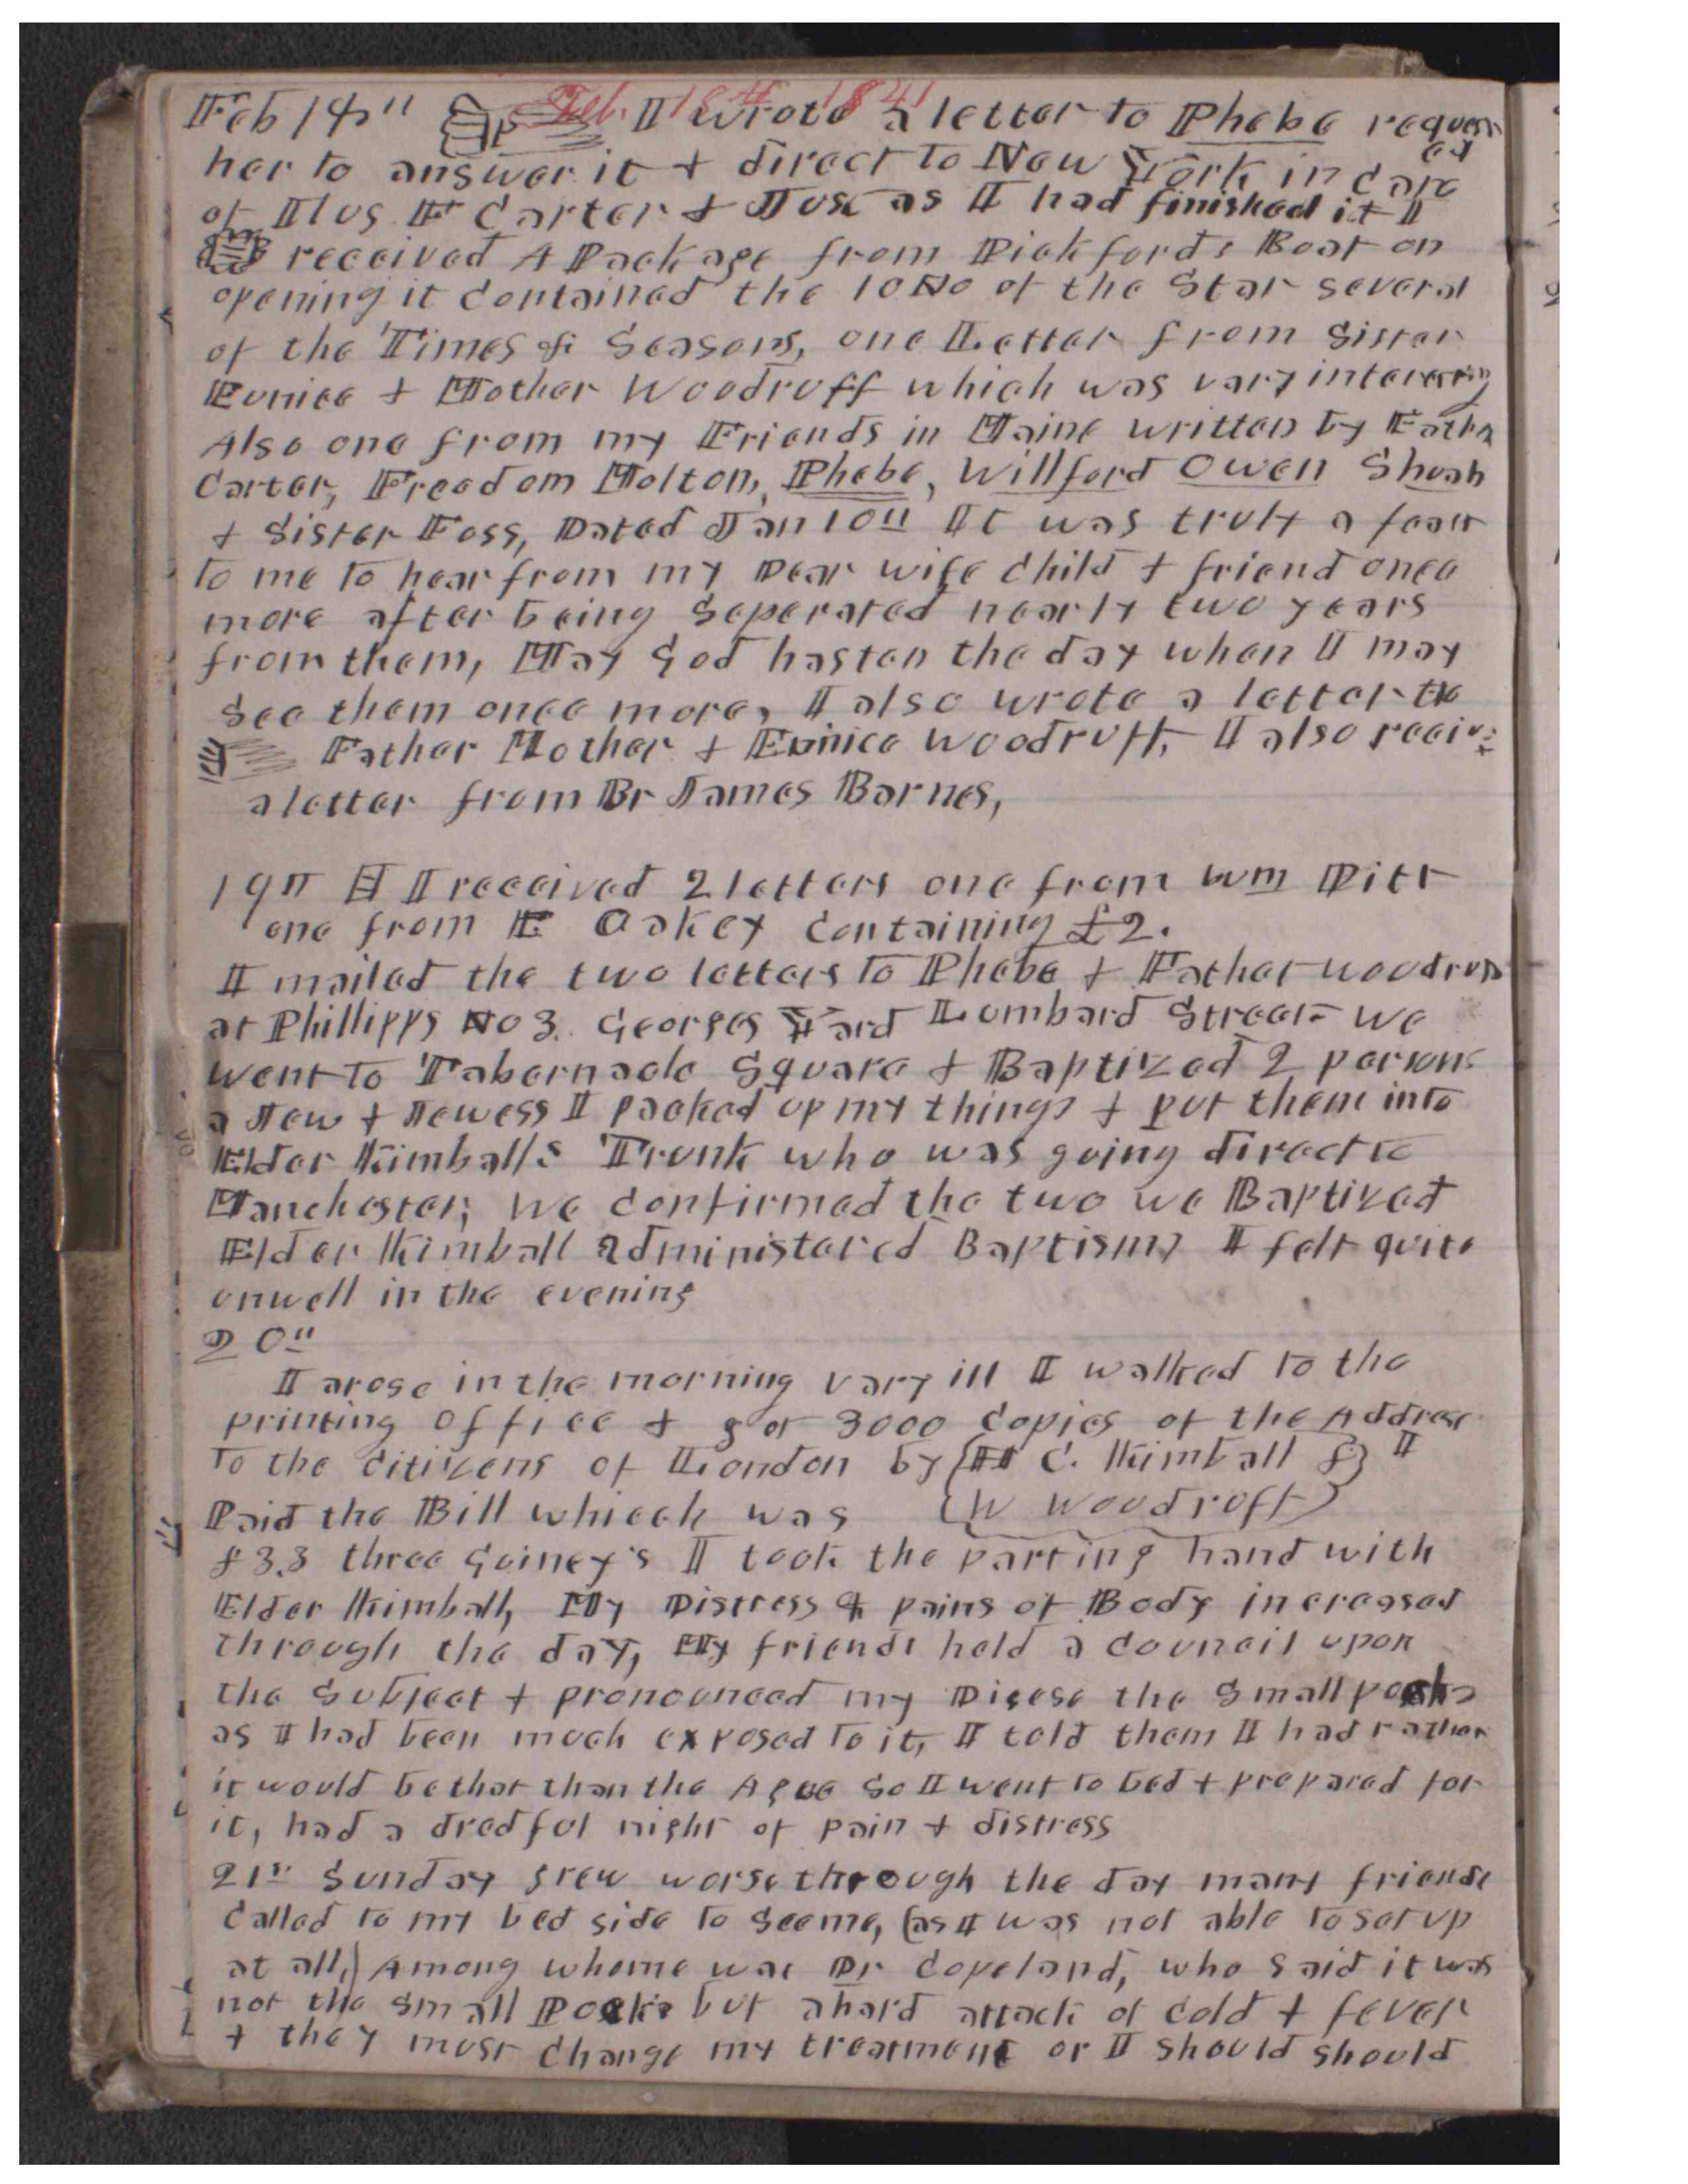 Feb 18th 1841
Feb 18th I wrote a letter to Phebe request
ed
her to answer it & direct to New York in care
of Ilus F Carter & Just as I had finished it I
received A Package from Pickfords Boat on
opening it contained the 10 No of the Star several
of the Times & Seasons, one Letter from Sister
Eunice & Mother Woodruff which was vary interesting
Also one from my Friends in Maine written by Father
Carter, Freedom Molton, Phebe, Willford Owen Shuah
& Sister Foss, Dated Jan 10th It was truly a feast
to me to hear from my Dear wife Child & friend once
more after being Seperated nearly two years
from them, May God hasten the day when I may
See them once more, I also wrote a letter to
Father Mother & Eunice Woodruff, I also receivd
a letter from Br James Barnes,
19th I received 2 letters one from Wm Pitt
one from E Oakey Containing £2.
I mailed the two letters to Phebe & Father Woodruff
at Phillipps No 3. Georges Yard Lombard Street we
went to Tabernacle Square & Baptized 2 persons
a Jew & Jewess I packed up my things & put them into
Elder Kimballs Trunk who was going direct to
Manchester; We Confirmed the two we Baptized
Elder Kimball administered Baptism I felt quite
unwell in the evening
20th
I arose in the morning vary ill I walked to the
printing office & got 3000 Copies of the Address
to the Citizens of London by {H C. Kimball &} I
Paid the Bill whicch was {W Woodruff}
£3.3 three Guiney's I took the parting hand with
Elder Kimball, My Distress & pains of Body increased
through the day, My friends held a Council upon
the Subject & pronounced my Disese the Small pocks
as I had been much exposed to it, I told them I had rather
it would be that than the Ague So I went to bed & prepared for
it, had a dredful night of pain & distress
21st Sunday grew worse through the day many friends
Called to my bed side to See me, (as I was not able to set up
at all,) Among whome was Dr Copeland, who Said it was
not the Small Pocks but a hard attack of Cold & fever
& they must Change my treatment or I should should